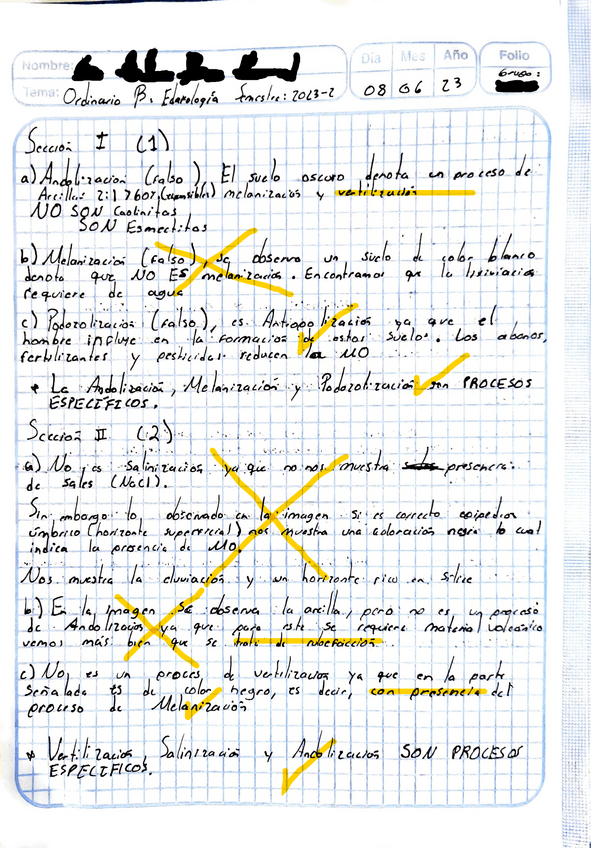 Nombre:
Día Mes Año Folio
Grupo:
Tema: Ordinario B. Edafología Semestre: 2023-2 08 06 23
Sección I (1)
a) Andolización (falso). El suelo oscuro denota un proceso de
Arcillas 2:1 760% (expansibles) melanización y vertilización
NO SON Caolinitas
SON Esmectitas
b) Melanización (falso), se observa un suelo de color blanco
denota que NO ES melanización. Encontramos que la lixiviación
requiere de agua
c) Podozolización (falso), es Antropolización ya que el
hombre influye en la formación de estos suelos. Los abonos,
fertilizantes y pesticidas reducen la MO
* La Andolización, Melanización y Podozolización son PROCESOS
ESPECÍFICOS.
Sección II (2)
a) No es Salinización ya que no nos muestra presencia
de sales (NaCl).
Sin embargo lo observado en la imagen si es correcto epipedion
úmbrico (horizonte superficial) nos muestra una coloración negra lo cual
indica la presencia de MO.
Nos muestra la eluviación y un horizonte rico en sílice
b) En la imagen se observa la arcilla, pero no es un proceso
de Andolización ya que para este se requiere material volcánico
vemos más bien que se trate de rubefacción.
c) No, es un proceso de vertilización ya que en la parte
señalada es de color negro, es decir, con presencia del
proceso de Melanización
* Vertilización, Salinización y Andolización SON PROCESOS
ESPECÍFICOS.